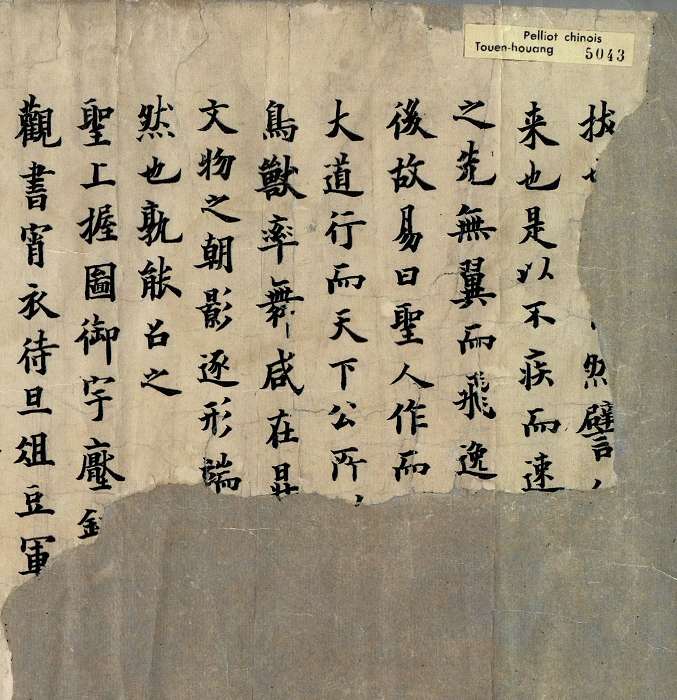 Pelliot chinois
Touen-houang 5043
拔
然譬
来也是以不疾而速
之先無翼而飛逸
後故易曰聖人作而
大道行而天下公所
鳥獸率舞咸在
文物之朝影逐形端
然也孰能名之
聖上握圖御宇
觀書宵衣待旦俎豆軍